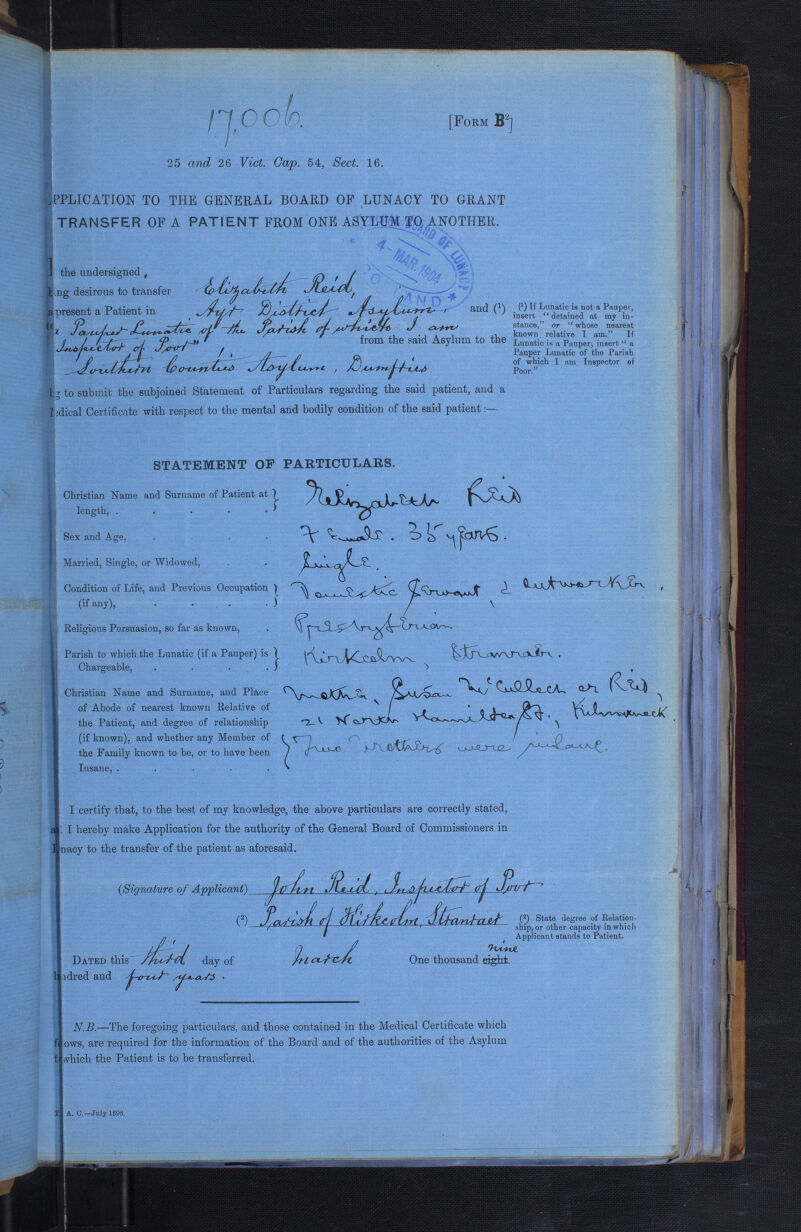 17,006.
[FORM B²]
25 and 26 Vict. Cap. 54, Sect. 16.
PPLICATION TO THE GENERAL BOARD OF LUNACY TO GRANT
TRANSFER OF A PATIENT FROM ONE ASYLUM TO ANOTHER.
BOARD OF LUNACY
4-MAR.1904
the undersigned,
ng desirous to transfer Elizabeth Reid,
present a Patient in Ayr District Asylum, and (¹)
"a Pauper Lunatic of the Parish of which I am
Inspector of Poor", from the said Asylum to the
Southern Counties Asylum, Dumfries
(¹) If Lunatic is not a Pauper,
insert "detained at my in-
stance," or "whose nearest
known relative I am." If
Lunatic is a Pauper, insert "a
Pauper Lunatic of the Parish
of which I am Inspector of
Poor."
g to submit the subjoined Statement of Particulars regarding the said patient, and a
edical Certificate with respect to the mental and bodily condition of the said patient:—
STATEMENT OF PARTICULARS.
Christian Name and Surname of Patient at length, . Elizabeth Reid
Sex and Age, Female. 35 years.
Married, Single, or Widowed, Single.
Condition of Life, and Previous Occupation (if any), Domestic Servant & outworker.
Religious Persuasion, so far as known, Presbyterian
Parish to which the Lunatic (if a Pauper) is Chargeable, Kirkcolm, Stranraer.
Christian Name and Surname, and Place of Abode of nearest known Relative of the Patient, and degree of relationship (if known), and whether any Member of the Family known to be, or to have been Insane, .
Mother, Susan McCulloch or Reid,
21 North Hamilton St., Kilmarnock.
Two brothers were insane.
I certify that, to the best of my knowledge, the above particulars are correctly stated,
I hereby make Application for the authority of the General Board of Commissioners in
nacy to the transfer of the patient as aforesaid.
(Signature of Applicant) John Reid, Inspector of Poor
(²) Parish of Kirkcolm, Stranraer
(²) State degree of Relation-
ship, or other capacity in which
Applicant stands to Patient.
nine
DATED this third day of March One thousand eight
ndred and four years.
N.B.—The foregoing particulars, and those contained in the Medical Certificate which
ows, are required for the information of the Board and of the authorities of the Asylum
which the Patient is to be transferred.
A. C.—July 1898.